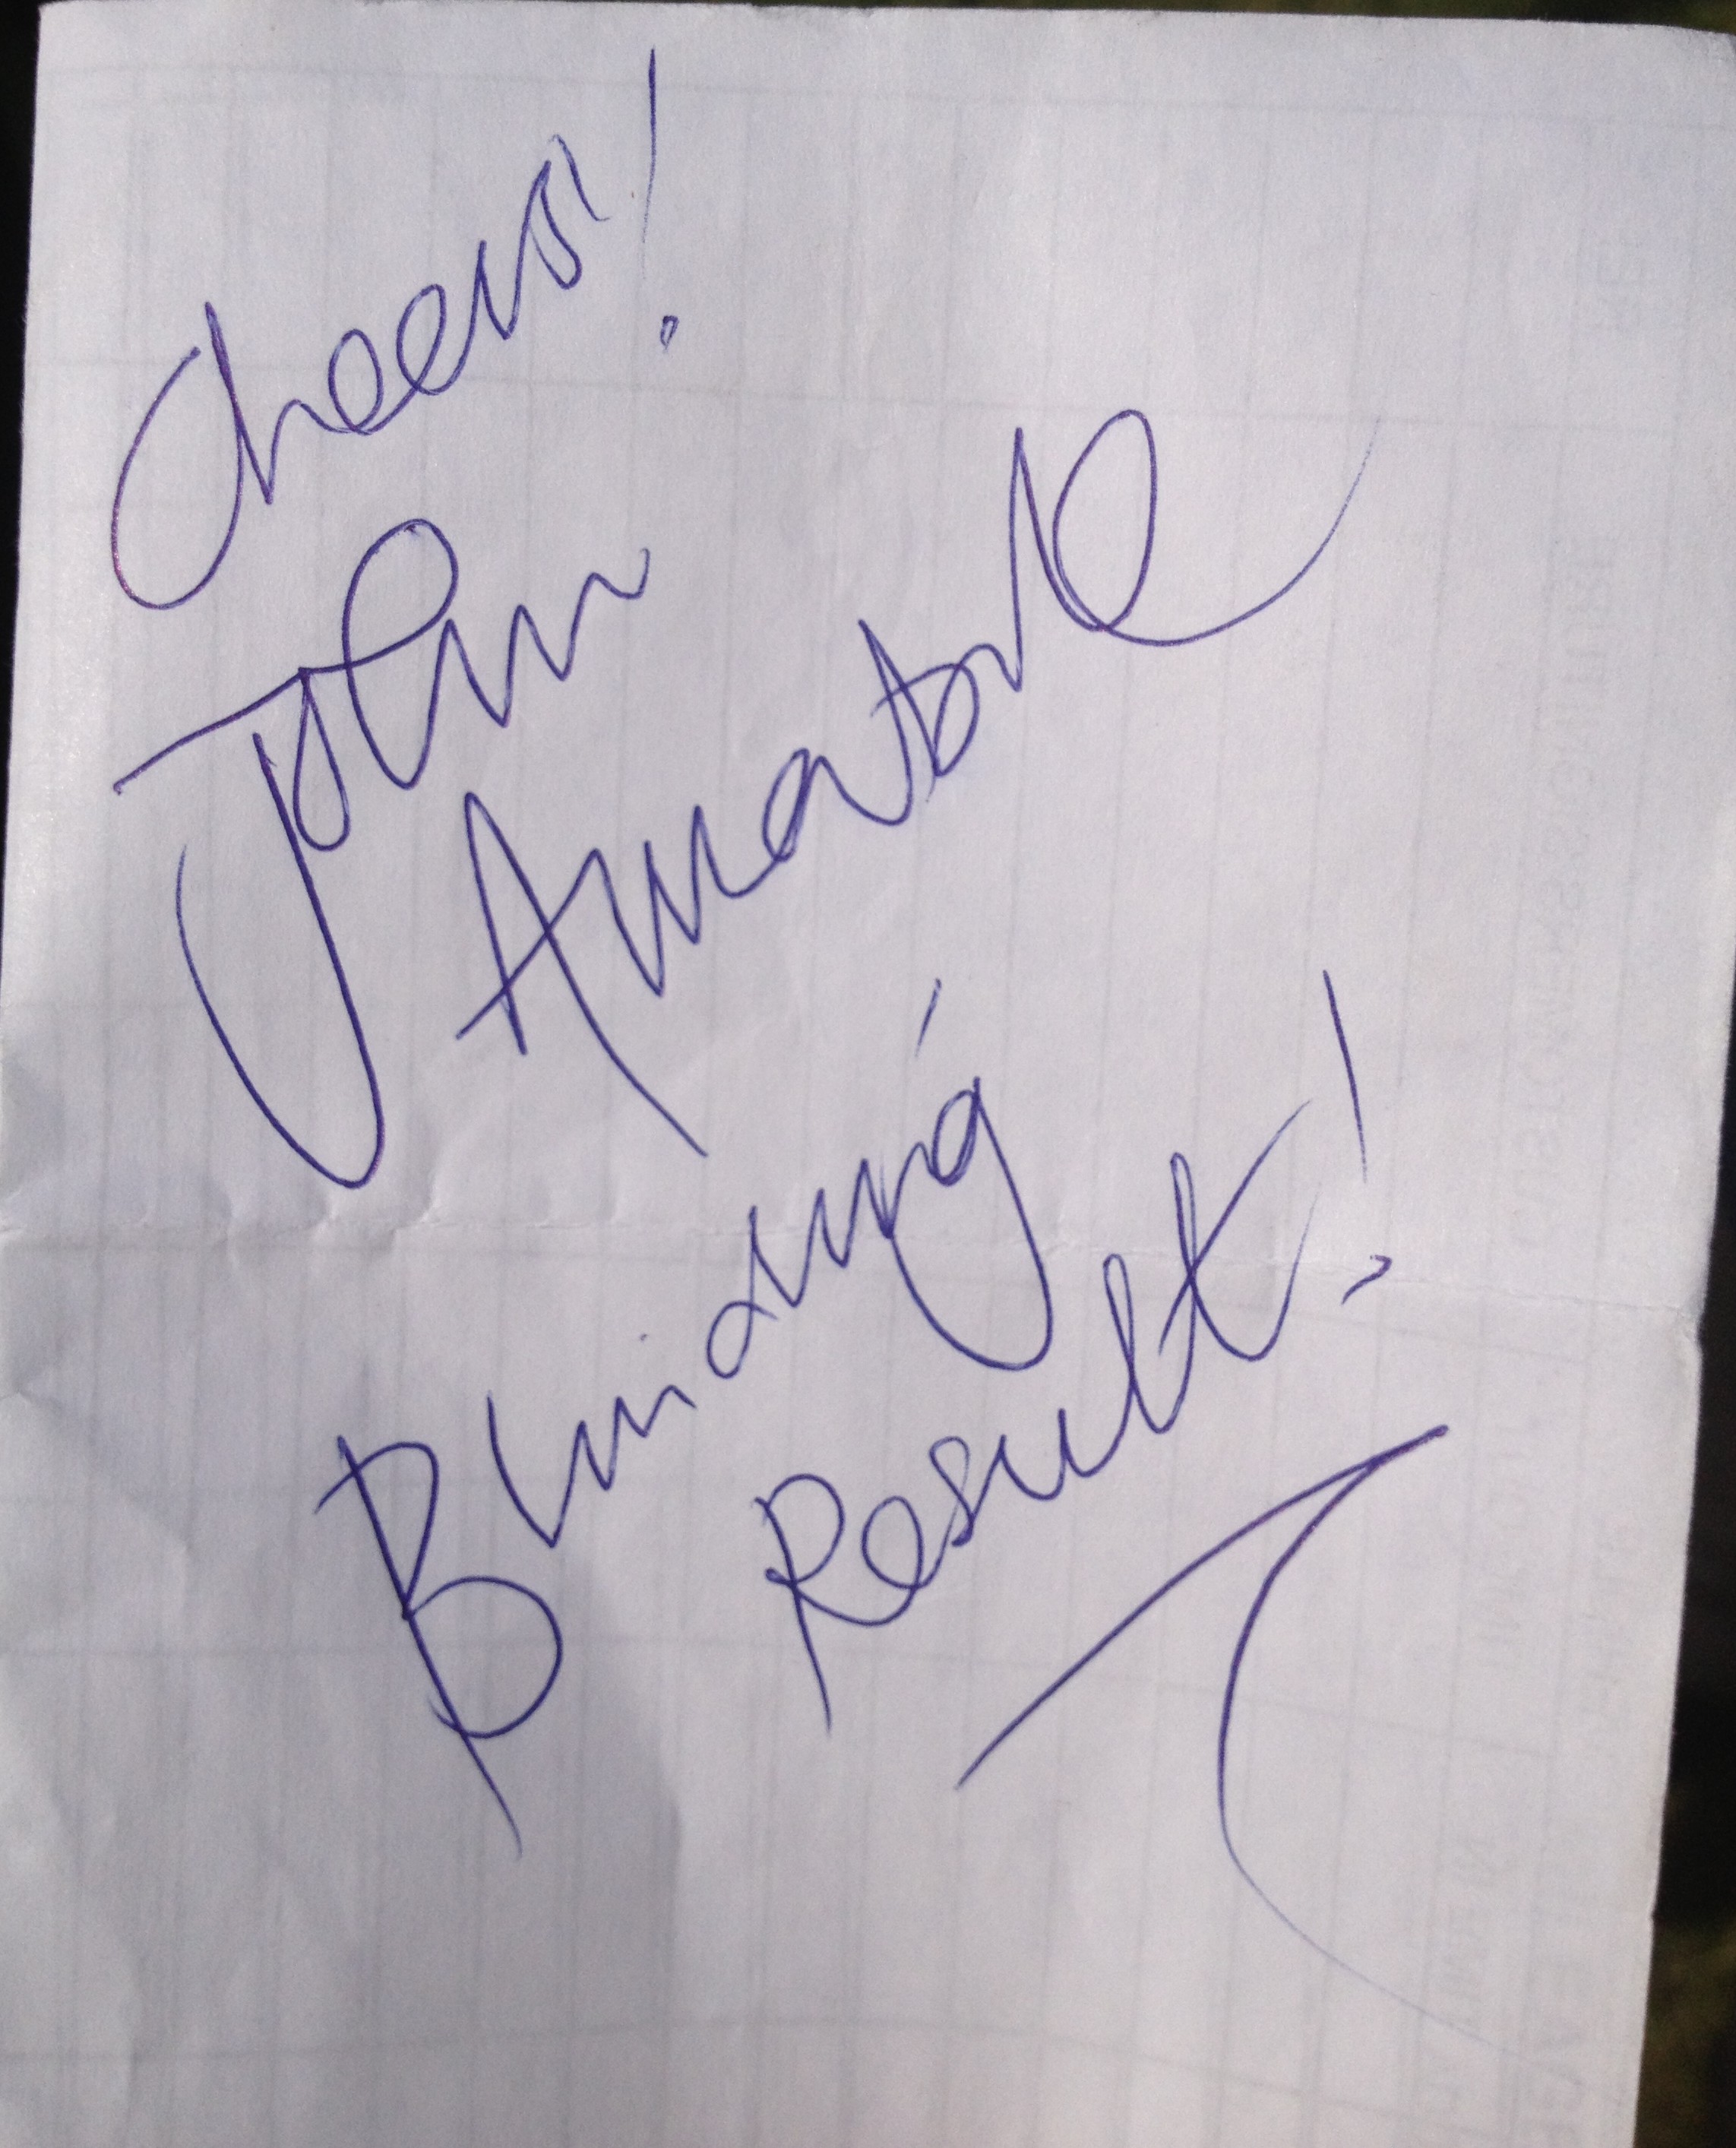 Cheers!
John
Amabile
Blinding
Result!